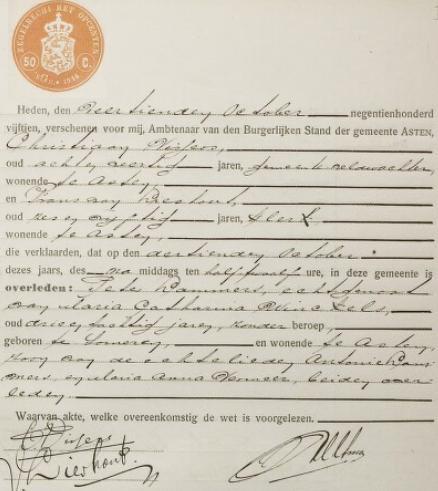 ZEGELRECHT MET OPCENTEN
50 C.
Heden, den Veertienden October negentienhonderd
vijftien, verschenen voor mij, Ambtenaar van den Burgerlijken Stand der gemeente ASTEN,
Christiaan
oud acht en veertig jaren, gemeente veldwachter,
wonende te Asten,
en Fransen Lieshout,
oud zes en vijftig jaren, klerk,
wonende te Asten,
die verklaarden, dat op den dertienden October
dezes jaars, des na middags ten half twaalf ure, in deze gemeente is
overleden: Peter Hammers, echtgenoot
van Maria Catharina
oud drie en tachtig jaren, zonder beroep,
geboren te Someren, en wonende te Asten,
zoon van de echtelieden Antonie
en Anna Vermeer, beiden over
leden.
Waarvan akte, welke overeenkomstig de wet is voorgelezen.
Lieshout